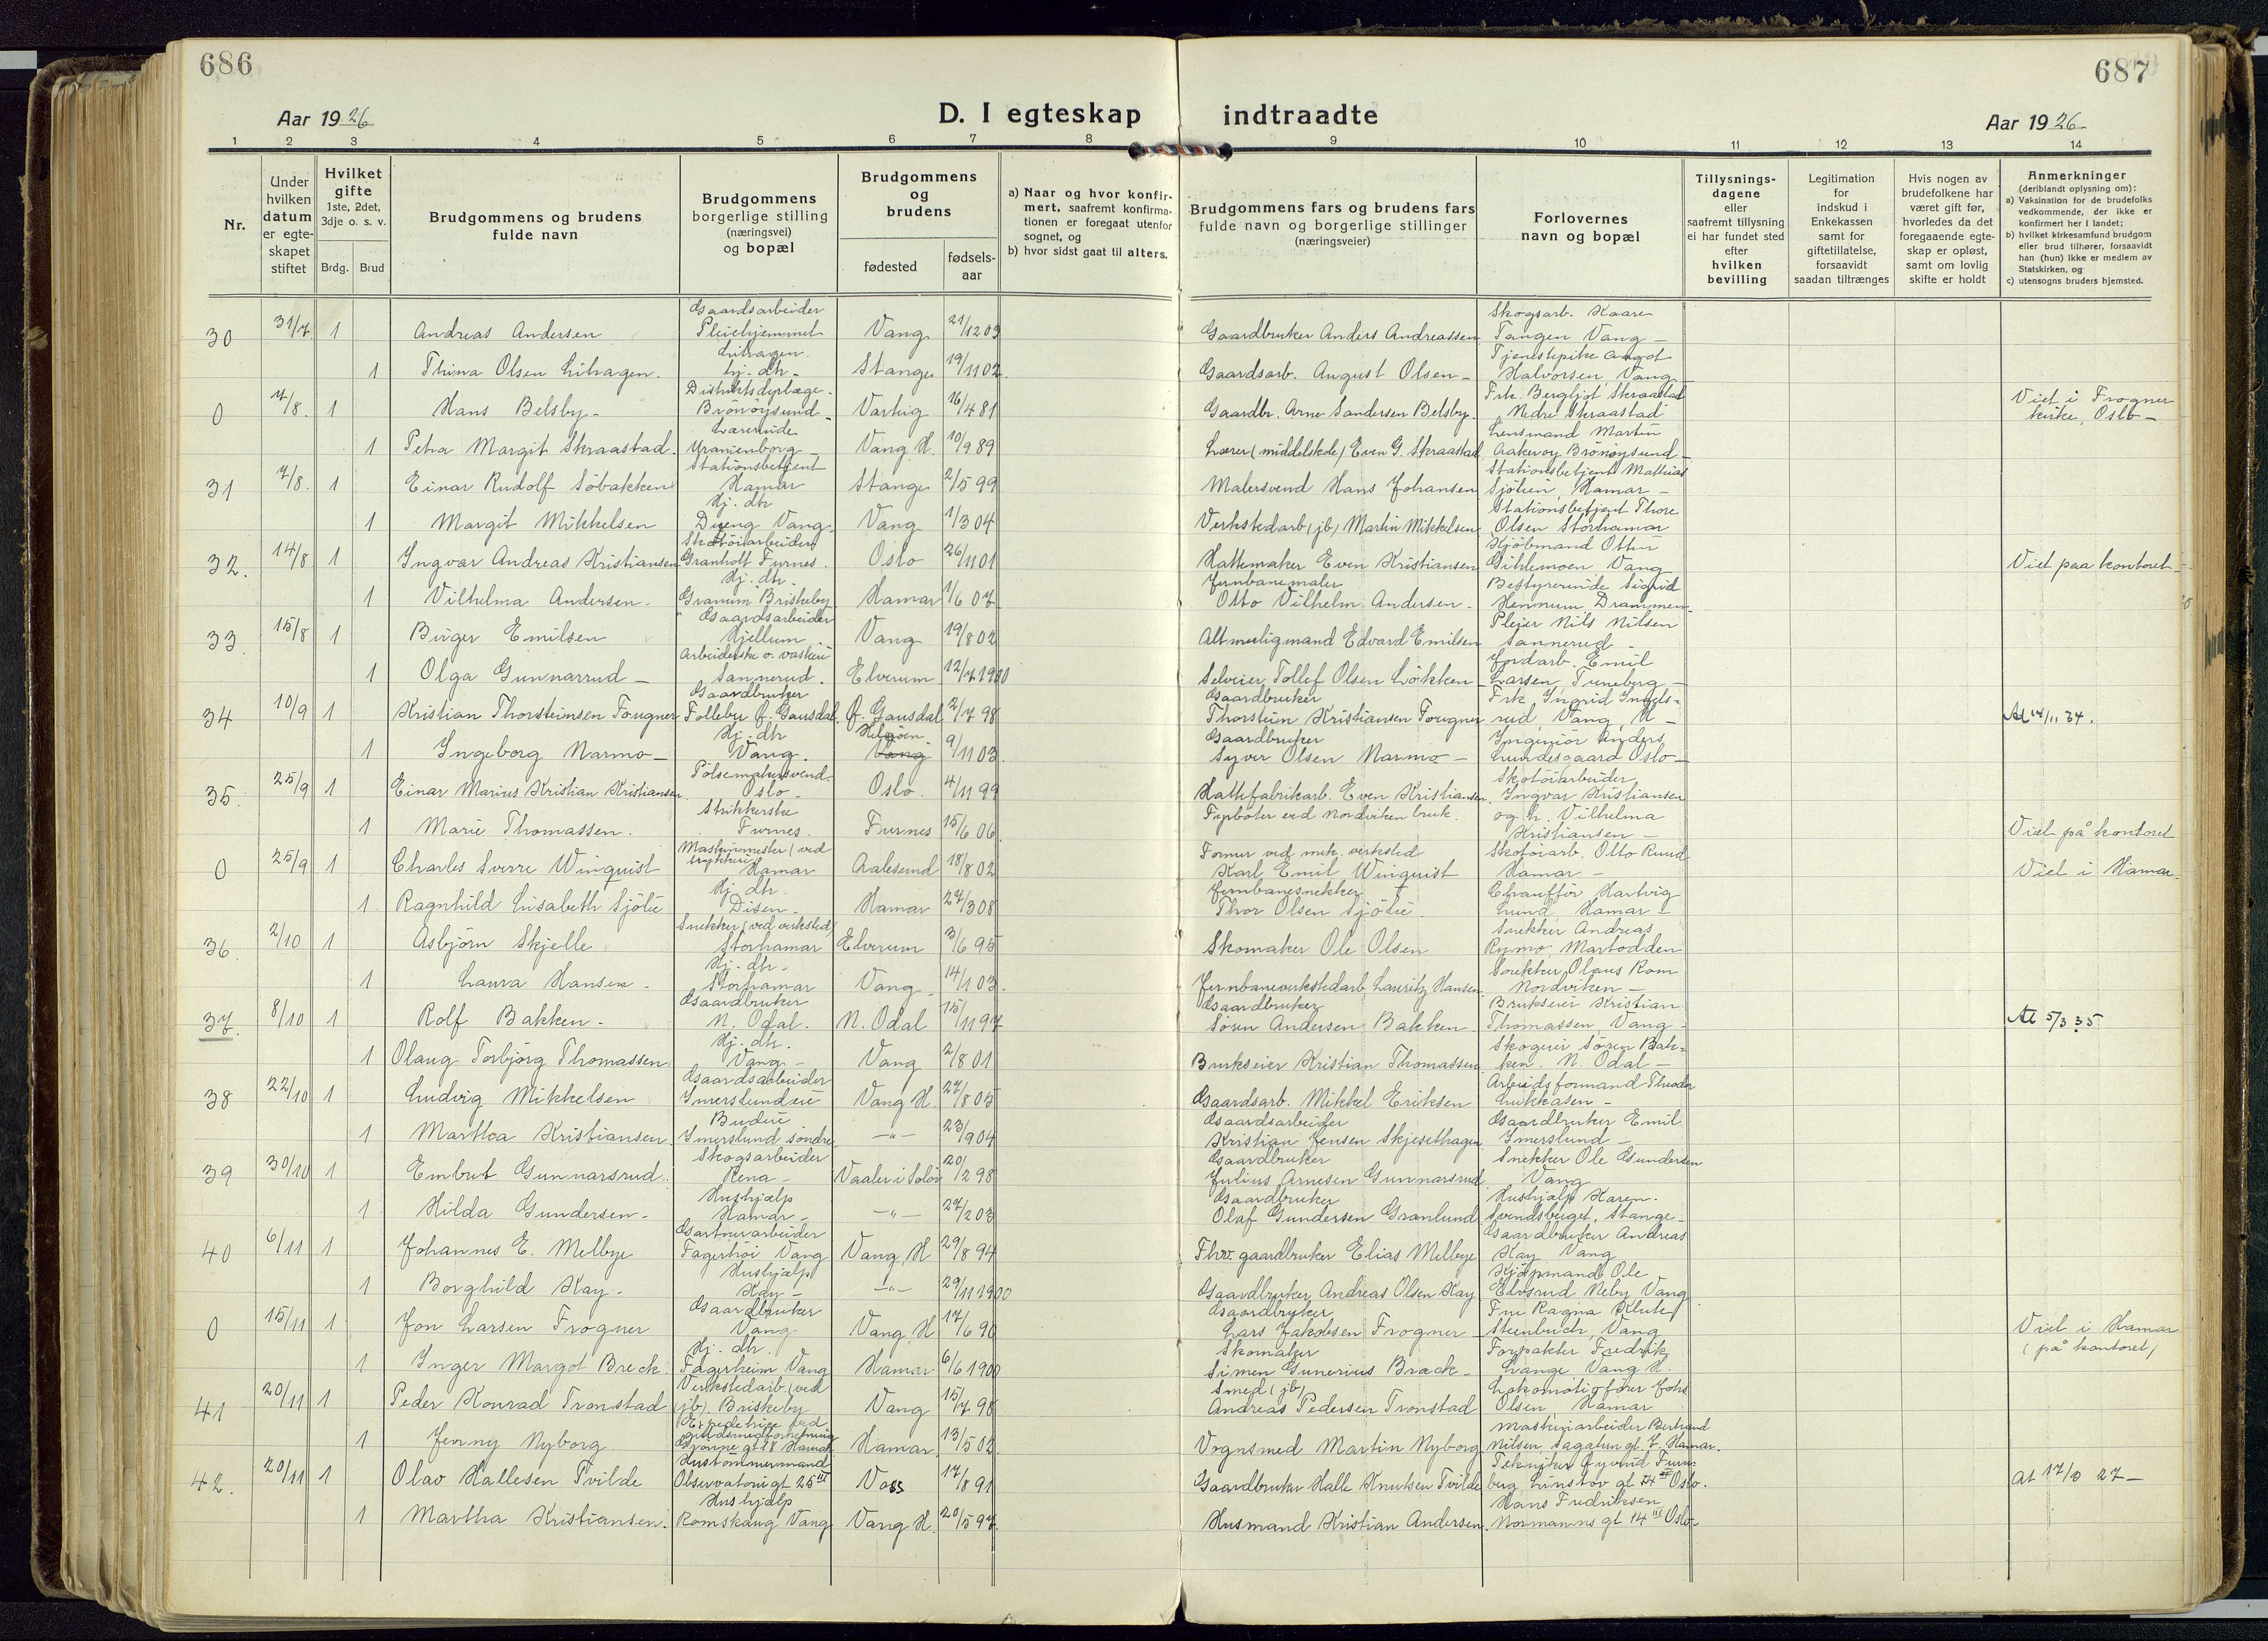 686
687
Aar 1926
D. I egteskap
indtraadte
Aar 1926
1 2 3 4 5 6 7 8 9 10 11 12 13 14
Nr.
Under hvilken datum er egteskapet stiftet
Hvilket gifte 1ste, 2det, 3dje o. s. v.
Brdg. Brud
Brudgommens og brudens fulde navn
Brudgommens borgerlige stilling (næringsvei) og bopæl
Brudgommens og brudens
fødested
fødselsaar
a) Naar og hvor konfirmert, saafremt konfirmationen er foregaat utenfor sognet, og
b) hvor sidst gaat til alters.
Brudgommens fars og brudens fars fulde navn og borgerlige stillinger (næringsveier)
Forlovernes navn og bopæl
Tillysningsdagene eller saafremt tillysning ei har fundet sted efter hvilken bevilling
Legitimation for indskud i Enkekassen samt for giftetillatelse, forsaavidt saadan tiltrænges
Hvis nogen av brudefolkene har været gift før, hvorledes da det foregaaende egteskap er opløst, samt om lovlig skifte er holdt
Anmerkninger
(deriblandt oplysning om):
a) Vaksination for de brudefolks vedkommende, der ikke er konfirmert her i landet;
b) hvilket kirkesamfund brudgom eller brud tilhører, forsaavidt han (hun) ikke er medlem av Statskirken, og
c) utensogns bruders hjemsted.
30 31/7 1 Andreas Andersen Gaardsarbeider Pleiehjemmet Vang 21/12 03 Gaardbruker Anders Andreassen Skogsarb. Kaare Tangen Vang
1 Thina Olsen Lihagen. Lihagen. Hj. dtr. Stange 19/11 02 Gaardsarb. August Olsen Tjenestepike Aagot Halvorsen Vang
0 7/8 1 Hans Belsby Distriktsdyrlæge Brönöysund Varteig 16/4 81 Gaardbr. Arne Sandersen Belsby Frk. Bergljot Skraastad Nedre Skraastad Viet i Frogner kirke, Oslo
1 Petra Margit Skraastad Lærerinde Uranienborg Vang H. 10/9 89 Lærer (middelskole) Even G. Skraastad Lensmand Martin Aakerøy Brönöysund
31 7/8 1 Einar Rudolf Söbakken Stationsbetjent Hamar Stange 2/5 99 Malersvend Hans Johansen Stationsbetjent Mathias Sjölien, Hamar
1 Margit Mikkelsen Hj. dtr Vang Vang 1/3 04 Verkstedarb (jb) Martin Mikkelsen Stationsbetjent Thore Olsen Storhamar
32. 14/8 1 Ingvar Andreas Kristiansen Skotöiarbeider Granholt Furnes. Oslo 26/11 01 Hattemaker Even Kristiansen Kjöbmand Otto Gihlemoen Vang Viet paa kontoret
1 Vilhelma Andersen Hj. dtr. Granum Briskeby Hamar 1/6 07 Jernbanemaler Otto Vilhelm Andersen Bestyrerinde Sigrid Hennum Drammen
33 15/8 1 Birger Emilsen Gaardsarbeider Hjellum Vang 19/8 02 Altmuligmand Edvard Emilsen Pleier Nils Nilsen Sannerud
1 Olga Gunnarrud Arbeiderske v. vaskeri Sannerud Elverum 12/7 1900 Selveier Tollef Olsen Lökken Jordarb. Emil Larsen, Tuneberg
34 10/9 1 Kristian Thorsteinsen Fougner Gaardbruker Follebu Ø. Gausdal Ø. Gausdal 2/7 98 Gaardbruker Thorstein Kristiansen Fougner Frk Ingrid Ingelsrud, Vang, H At 14/11 34.
1 Ingeborg Narmo Hj. dtr Vang. Helgöen Vang 9/11 03 Gaardbruker Syver Olsen Narmo Ingeniör Anders Lundesgaard Oslo
35. 25/9 1 Einar Marius Kristian Kristiansen Pölsemakersvend Oslo Oslo 4/11 99 Hattefabrikarb. Even Kristiansen Skotöiarbeider Ingvar Kristiansen
1 Marie Thomassen Strikkerske Furnes. Furnes 15/6 06 Fyrböter ved Nordviken bruk. og h. Vilhelma Kristiansen Viet på kontoret
0 25/9 1 Charles Sverre Winquist Maskinmester (ved trykkeri) Hamar Aalesund 18/8 02 Former ved mek. verksted Karl Emil Winquist Skotöiarb. Otto Ruud Hamar Viet i Hamar.
1 Ragnhild Lisabeth Sjölie Hj. dtr. Disen Hamar 27/3 08 Jernbanesnekker Thor Olsen Sjölie Chauffør Hartvig Lund, Hamar
36. 2/10 1 Asbjörn Skjelle Snekker (ved verksted) Storhamar Elverum 3/6 95 Skomaker Ole Olsen Snekker Andreas Rymo Martodden
1 Laura Hansen Hj. dtr. Storhamar Vang 14/1 03 Jernbaneverkstedarb. Lauritz Hansen Snekker Olaus Rom Nordviken
37. 8/10 1 Rolf Bakken Gaardbruker N. Odal. N. Odal 15/11 97 Gaardbruker Sören Andersen Bakken Brukseier Kristian Thomassen, Vang At 5/3 35
1 Olaug Torbjörg Thomassen Hj. dtr. Vang Vang 2/8 01 Brukseier Kristian Thomassen Skogeier Sören Bakken. N. Odal
38 22/10 1 Ludvig Mikkelsen Gaardsarbeider Ymerslundeie Vang H. 27/8 05 Gaardsarb. Mikkel Eriksen Arbeidsformand Theodor Lukkåsen
1 Marthea Kristiansen Budeie Ymerslund söndre -"- 23/9 04 Gaardsarbeider Kristian Jensen Skjesethagen Gaardbruker Emil Ymerslund
39 30/10 1 Embret Gunnarsrud Skogsarbeider Rena Vaaler i Solör 20/12 98 Gaardbruker Julius Arnesen Gunnarsrud Snekker Ole Gundersen Vang
1 Hilda Gundersen Hushjælp Hamar -"- 27/2 03 Gaardbruker Olaf Gundersen Granlund Hushjælp Karen Svendsberget, Stange
40 6/11 1 Johannes E. Melbye Gartnerarbeider Fagerhöi Vang Vang, H 29/8 94 Fhv. gaardbruker Elias Melbye Gaardbruker Andreas Kay Vang
1 Borghild Kay Hushjælp Kay -"- 29/11 1900 Gaardbruker Andreas Olsen Kay Kjöpmand Ole Elvsund Neby Vang
0 15/11 1 Jon Larsen Frogner Gaardbruker Vang Vang, H 17/6 90 Gaardbruker Lars Jakobsen Frogner Fru Ragna Klute Steenbuch, Vang Viet i Hamar (på kontoret)
1 Inger Margot Breck Hj. dtr. Fagerheim Vang Hamar 6/6 1900 Skomaker Simen Gunerius Brack Forpakter Fredrik Lange Vang H.
41 20/11 1 Peder Konrad Tronstad Verkstedarb. (ved jb). Briskeby Vang 15/7 98 Smed (jb) Andreas Pedersen Tronstad Lokomotivfører Johs Olsen, Hamar
1 Jenny Nyborg Grönne gt 8 Hamar Hamar 13/5 02 Vognsmed Martin Nyborg Maskinarbeider Bertrand Nilsen, Sagatun gt. 7. Hamar.
42. 20/11 1 Olav Hallesen Tvilde Hustömmermand Observatorie gt 25 III Voss 17/8 91 Gaardbruker Halle Knutsen Tvilde Tekniker Öyvind Furuberg, Linstov gt Oslo. At 17/8 27
1 Martha Kristiansen Hushjælp Romskaug Vang Vang H. 20/5 97 Husmand Kristian Andersen Hans Fredriksen Normanns gt 14 III Oslo